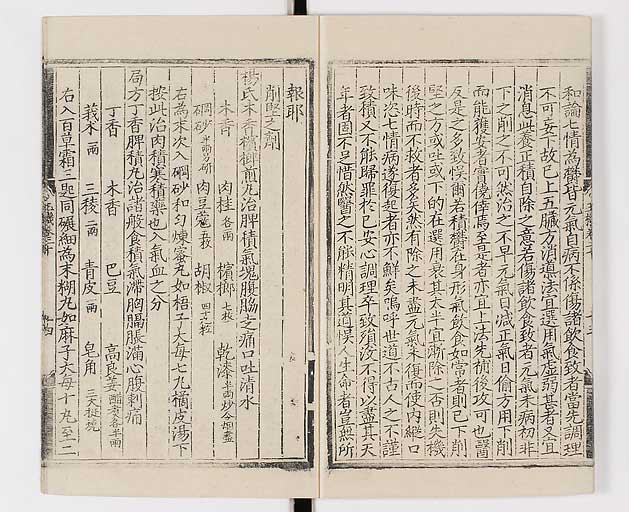 和論七情為欝皆元氣自病不係傷諸飲食致者當先調理
不可妄下故已上五臟方消導法宜選用氣虛弱甚者又宜
消息此養正積自除之意若傷諸飲食致者元氣未病初非
下之削之不可然治之不早元氣日减正氣日偷方用下削
而能獲安者實僥倖焉至是者亦宜上法先補後攻可也醫
反是之多致悞爾若積欝在身形氣飲食如常者則已下削
堅之方或吐或下的在選用衰其太半宜漸除之否則失機
後時而不救者多矣然有除之未盡元氣未復而使內縱口
味次七情病遂復起者亦不鮮矣嗚呼世道不古人之不謹
致積又不能歸罪於已安心調理卒致須沒不得以盡其天
年者固不足惜然醫之不能精明其道悞人生命者豈無所
報耶
削堅之劑
楊氏木香檳榔煎丸治脾積氣塊腹脇之痛口吐清水
木香 肉桂各兩 檳榔七枚 乾漆半兩炒令烟盡
硇砂 肉豆蔻五枚 胡椒四十粒
右為末次入硇砂和勻煉蜜丸如梧子大每七九橘皮湯下
按此治肉積寒積藥也入氣血之分
局方丁香脾積丸治諸般食積氣滯胸膈脹滿心腹刺痛
丁香 木香 巴豆 高良姜醋煮各半兩
莪朮二兩 三稜二兩 青皮一兩 皂角三大挺燒
右入百草霜三匙同碾細為末糊丸如麻子大每十丸至二